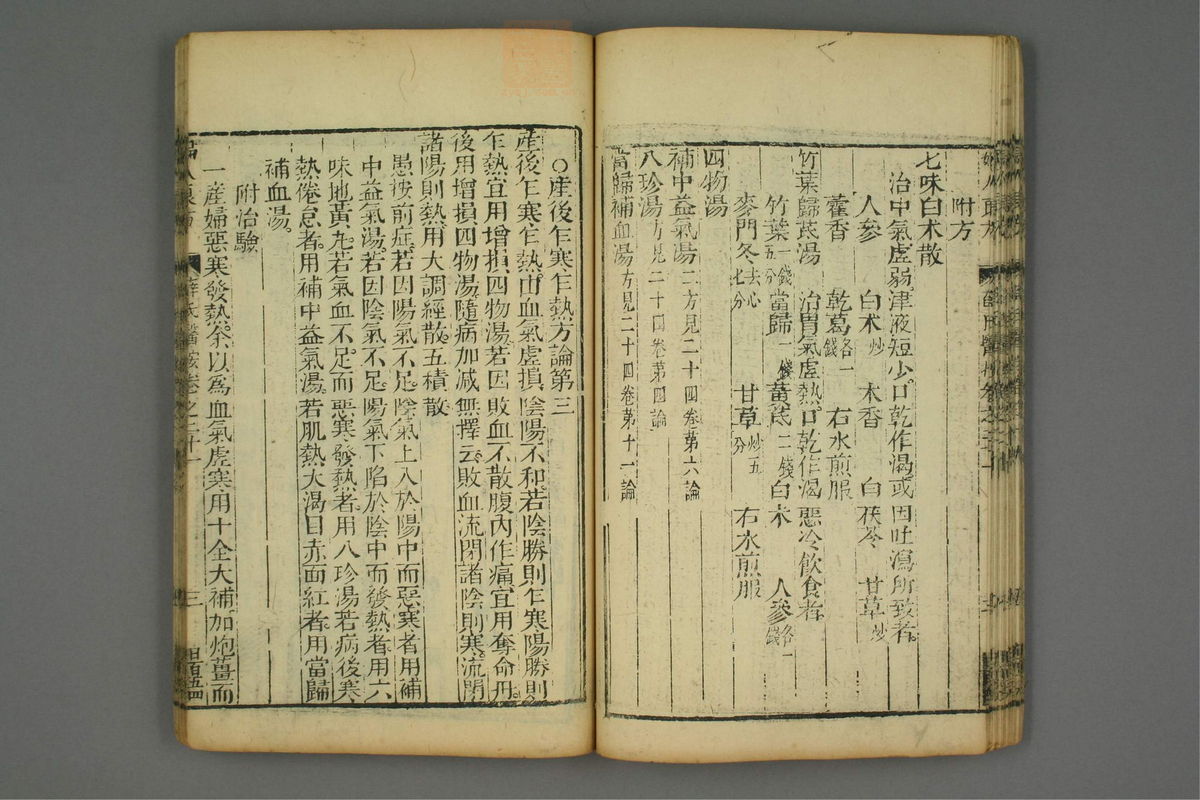 附方
七味白术散
治中氣虛弱津液短少口乾作渴或因吐瀉所致者
人參 白术炒 木香 白茯苓 甘草炒
藿香 乾葛各一錢 右水煎服
竹葉歸芪湯 治胃氣虛熱口乾作渴惡冷飲食者
竹葉一錢五分 當歸一錢 黃芪二錢 白术 人參各一錢
麥門冬去心七分 甘草炒五分 右水煎服
四物湯
補中益氣湯二方見二十四卷第六論
八珍湯方見二十四卷第四論
當歸補血湯方見二十四卷第十一論
○產後乍寒乍熱方論第三
產後乍寒乍熱由血氣虛損陰陽不和若陰勝則乍寒陽勝則
乍熱宜用增損四物湯若因敗血不散腹內作痛宜用奪命丹
後用增損四物湯隨病加減無擇云敗血流閉諸陰則寒流閉
諸陽則熱用大調經散五積散
愚按前症若因陽氣不足陰氣上入於陽中而惡寒者用補
中益氣湯若因陰氣不足陽氣下陷於陰中而發熱者用六
味地黃丸若氣血不足而惡寒發熱者用八珍湯若病後寒
熱倦怠者用補中益氣湯若肌熱大渴目赤面紅者用當歸
補血湯
附治驗
一產婦惡寒發熱余以為血氣虛寒用十全大補加炮薑而
三